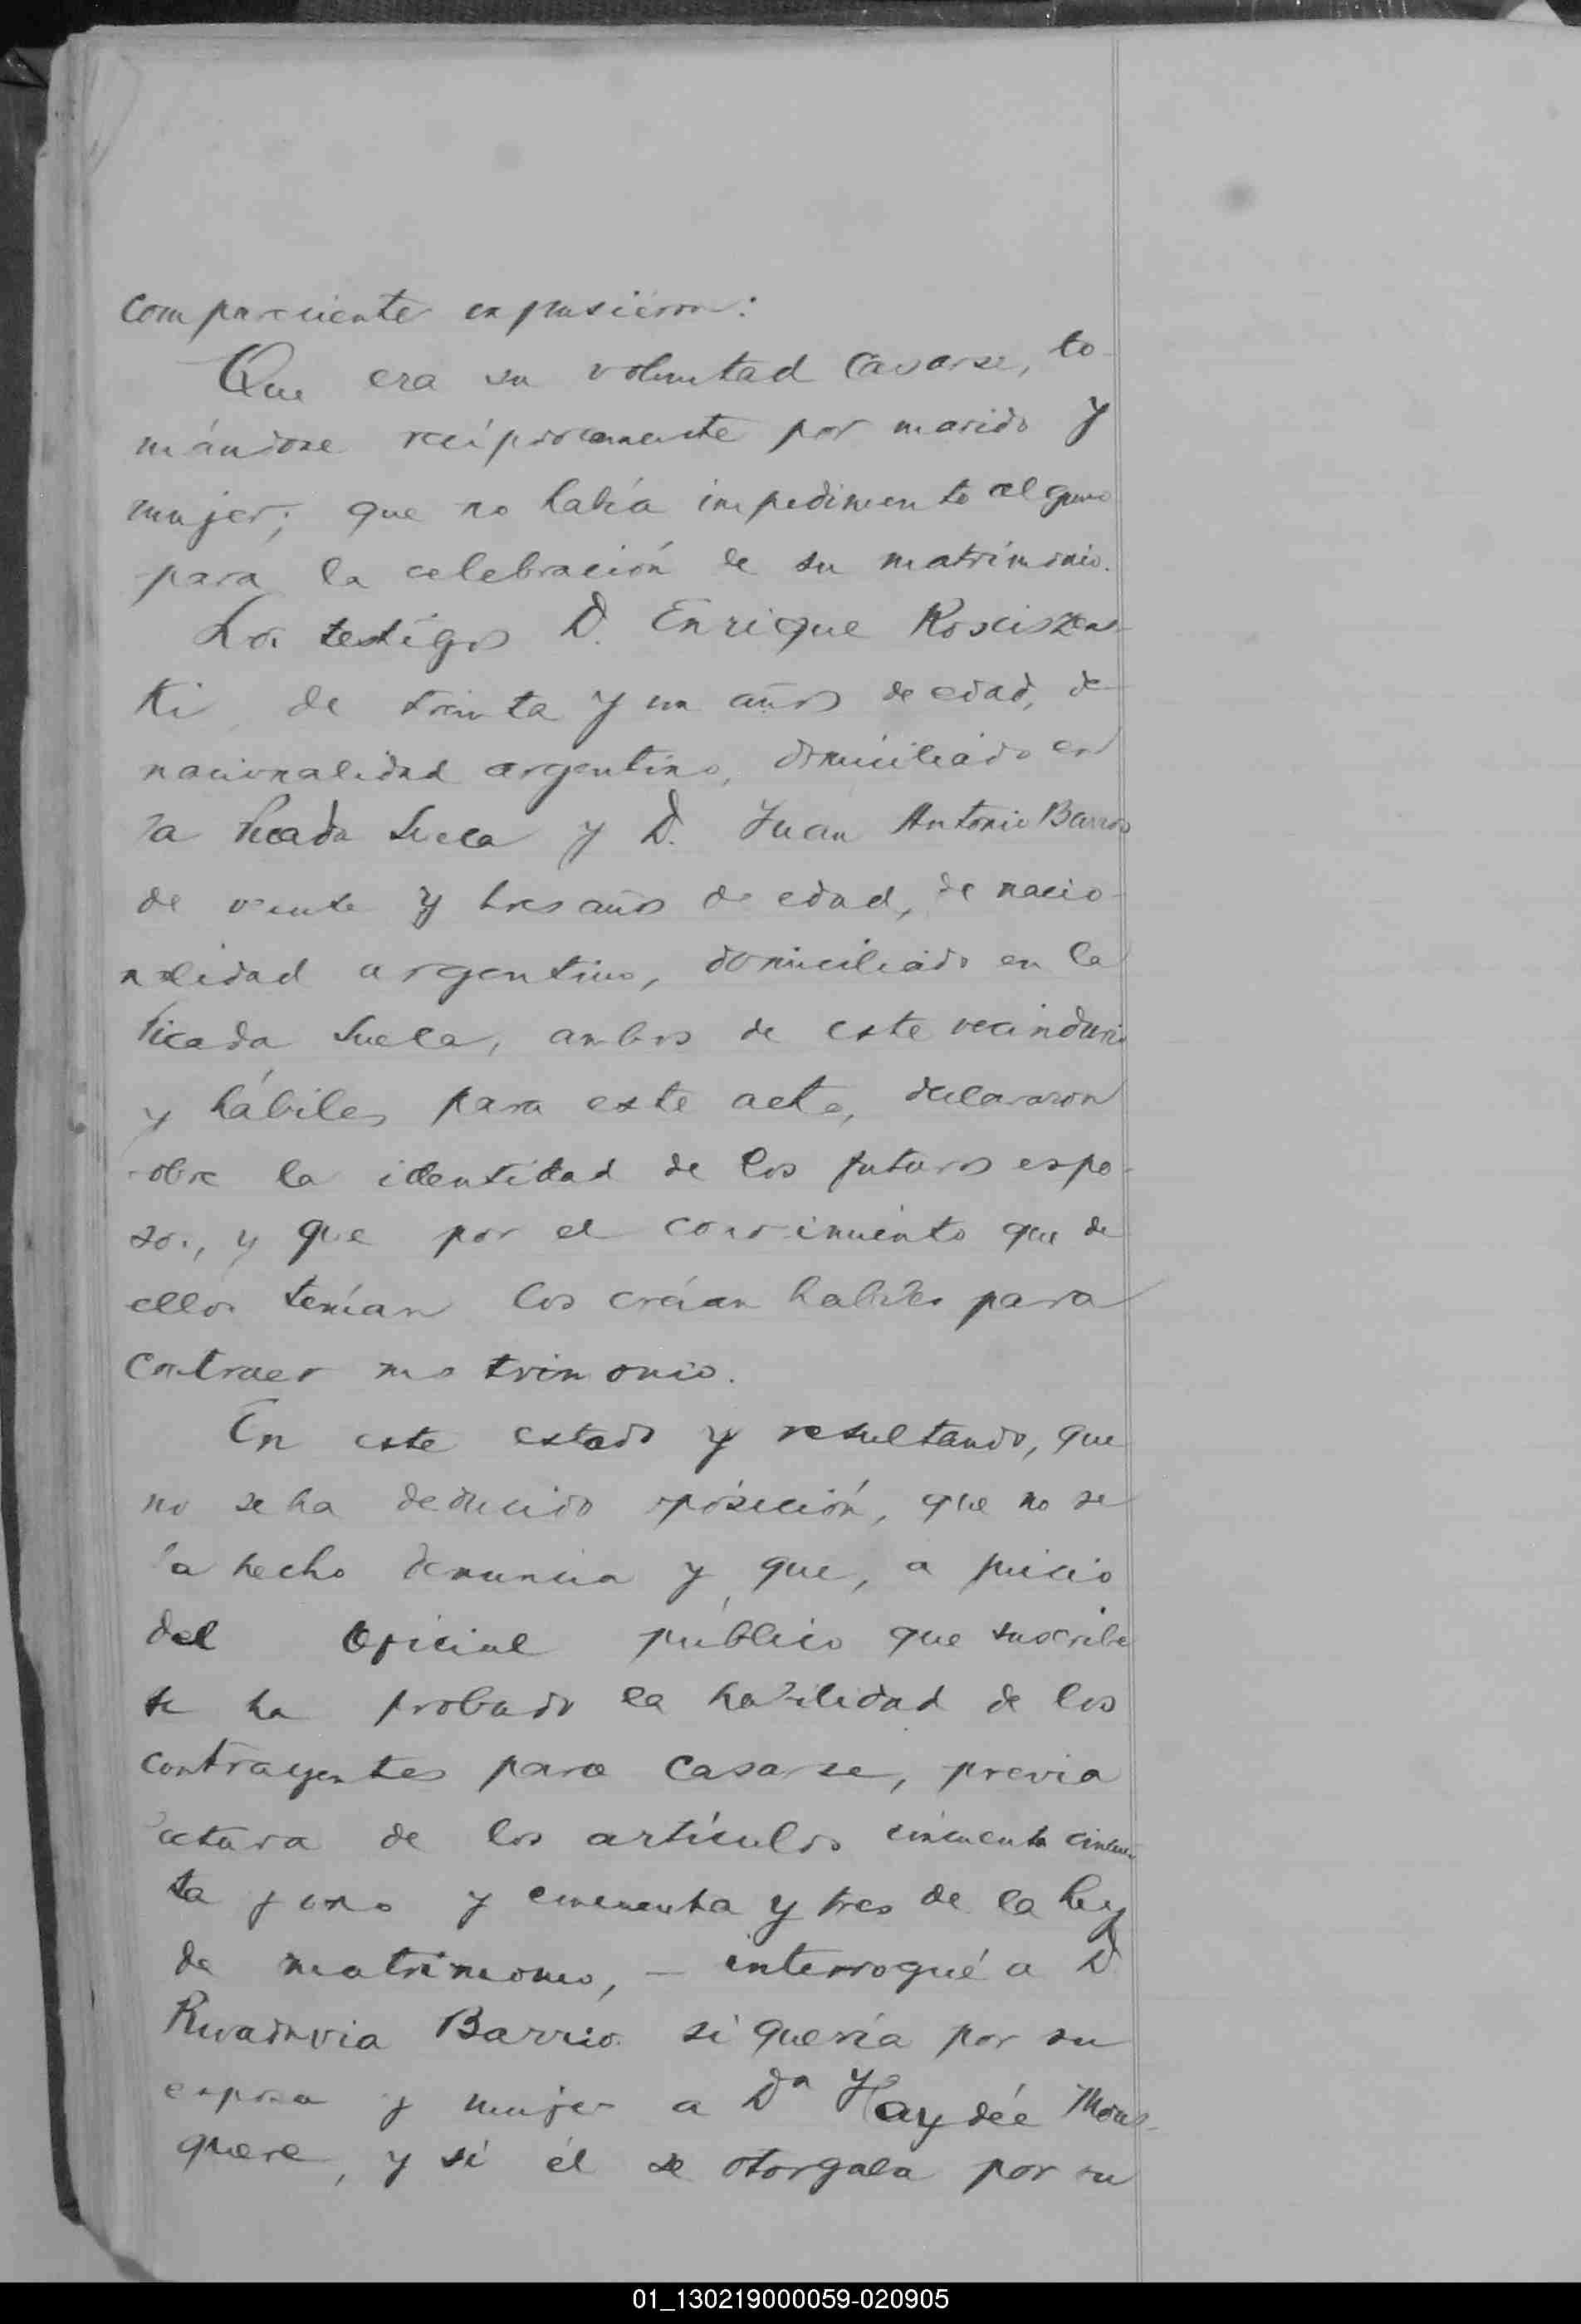 compareciente expusieron:
Que era su voluntad casarse, to-
mándose recíprocamente por marido y
mujer; que no había impedimento alguno
para la celebración de su matrimonio.
Los testigos D. Enrique Rosciszews-
ki de treinta y un años de edad, de
nacionalidad argentino, domiciliado en
la Picada Sueca y D. Juan Antonio Barrios
de veinte y tres años de edad, de nacio-
nalidad argentino, domiciliado en la
Picada Sueca, ambos de este vecindario
y hábiles para este acto, declararon
sobre la identidad de los futuros espo-
sos, y que por el conocimiento que de
ellos tenían los creían habiles para
contraer matrimonio.
En este estado y resultando, que
no se ha deducido oposición, que no se
ha hecho denuncia y que, a juicio
del Oficial público que suscribe
se ha probado la habilidad de los
contrayentes para casarse, previa
lectura de los artículos cincuenta cincuen-
ta y uno y cincuenta y tres de la Ley
de matrimonio, — interrogué a D.
Rivadavia Barrios si quería por su
esposa y mujer a Dª Haydée Mous-
quere, y si él se otorgaba por su
01_130219000059-020905